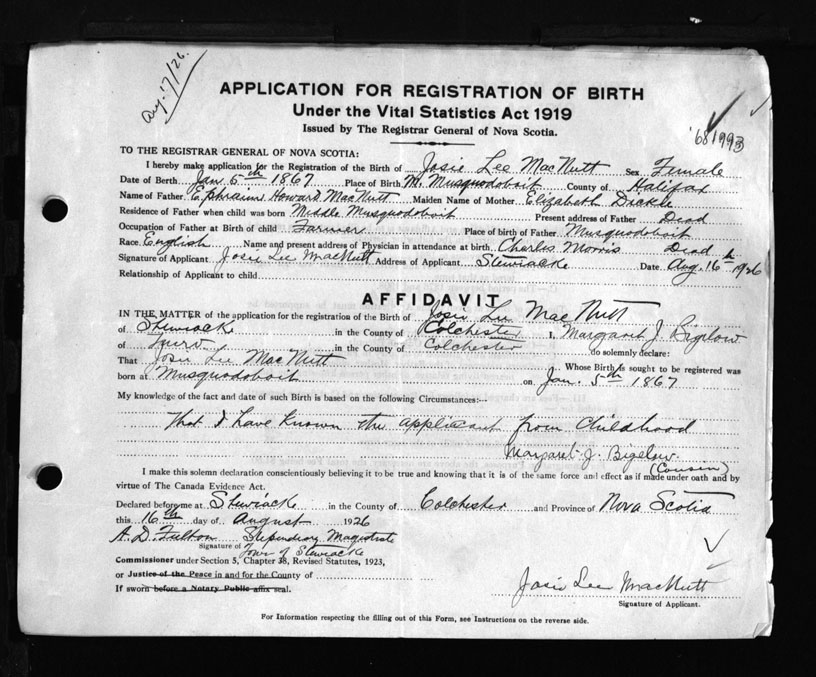 Aug. 17/26.
APPLICATION FOR REGISTRATION OF BIRTH
Under the Vital Statistics Act 1919
Issued by The Registrar General of Nova Scotia.
681993
TO THE REGISTRAR GENERAL OF NOVA SCOTIA:
I hereby make application for the Registration of the Birth of Josie Lee MacNutt Sex Female
Date of Birth Jan 5th 1867 Place of Birth M. Musquodoboit County of Halifax
Name of Father Ephraim Howard MacNutt Maiden Name of Mother Elizabeth Dickie
Residence of Father when child was born Middle Musquodoboit Present address of Father Dead
Occupation of Father at Birth of child Farmer Place of birth of Father Musquodoboit
Race English Name and present address of Physician in attendance at birth Charles Morris Dead
Signature of Applicant Josie Lee MacNutt Address of Applicant Stewiacke Date Aug. 16th 1926
Relationship of Applicant to child
AFFIDAVIT
IN THE MATTER of the application for the registration of the Birth of Josie Lee MacNutt
of Stewiacke in the County of Colchester I, Margaret J. Bigelow
of Truro in the County of Colchester do solemnly declare:
That Josie Lee MacNutt Whose Birth is sought to be registered was
born at Musquodoboit on Jan. 5th 1867
My knowledge of the fact and date of such Birth is based on the following Circumstances:--
That I have known the applicant from Childhood
Margaret J. Bigelow.
(Cousin)
I make this solemn declaration conscientiously believing it to be true and knowing that it is of the same force and effect as if made under oath and by
virtue of The Canada Evidence Act.
Declared before me at Stewiacke in the County of Colchester and Province of Nova Scotia
this 16th day of August 1926
A. D. Fulton Stipendiary Magistrate
Signature of Town of Stewiacke
Commissioner under Section 5, Chapter 38, Revised Statutes, 1923,
or Justice of the Peace in and for the County of
If sworn before a Notary Public affix seal.
Josie Lee MacNutt
Signature of Applicant.
For Information respecting the filling out of this Form, see Instructions on the reverse side.